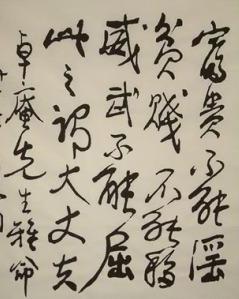 富贵不能淫
贫贱不能移
威武不能屈
此之谓大丈夫
卓庵先生雅命